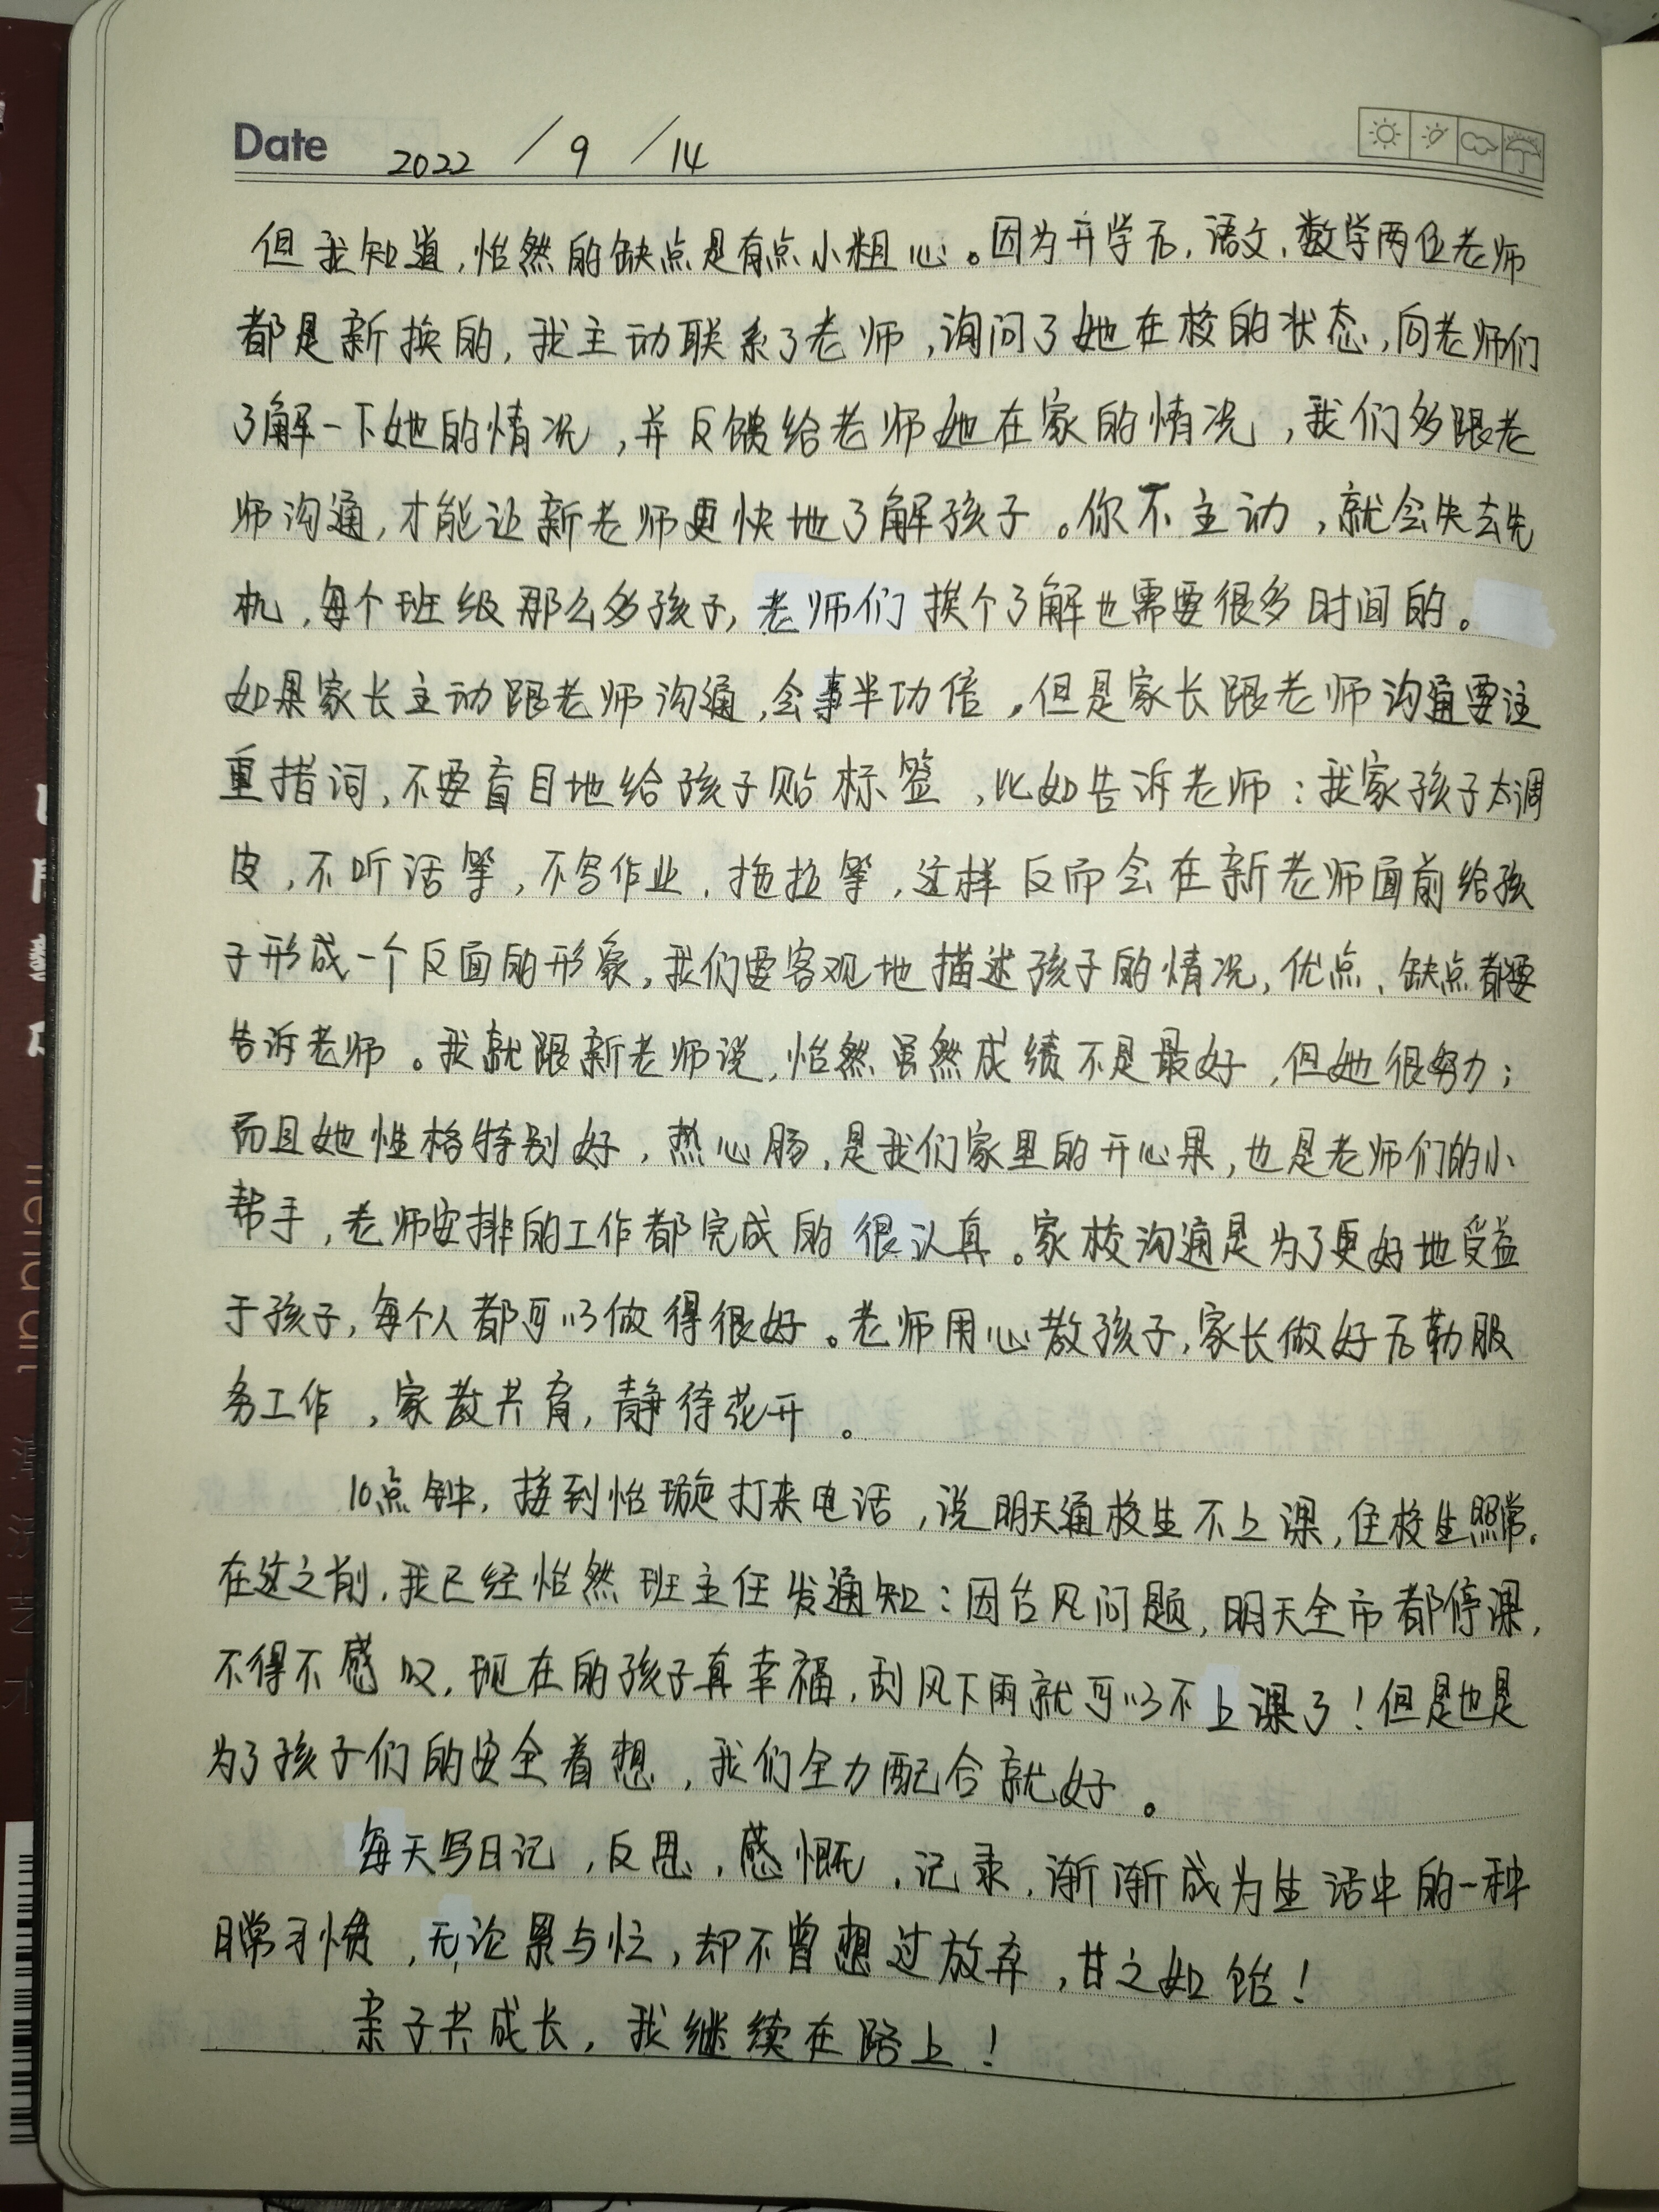 Date 2022 / 9 / 14
但我知道,怡然的缺点是有点小粗心。因为开学后,语文、数学两位老师
都是新换的,我主动联系了老师,询问了她在校的状态,向老师们
了解一下她的情况,并反馈给老师她在家的情况,我们多跟老
师沟通,才能让新老师更快地了解孩子。你不主动,就会失去先
机,每个班级那么多孩子,老师们挨个了解也需要很多时间的。
如果家长主动跟老师沟通,会事半功倍,但是家长跟老师沟通要注
重措词,不要盲目地给孩子贴标签,比如告诉老师:我家孩子太调
皮,不听话等,不写作业,拖拉等,这样反而会在新老师面前给孩
子形成一个反面的形象,我们要客观地描述孩子的情况,优点、缺点都要
告诉老师。我就跟新老师说,怡然虽然成绩不是最好,但她很努力;
而且她性格特别好,热心肠,是我们家里的开心果,也是老师们的小
帮手,老师安排的工作都完成的很认真。家校沟通是为了更好地受益
于孩子,每个人都可以做得很好。老师用心教孩子,家长做好后勤服
务工作,家教共育,静待花开。
10点钟,接到怡璇打来电话,说明天通校生不上课,住校生照常。
在这之前,我已经怡然班主任发通知:因台风问题,明天全市都停课,
不得不感叹,现在的孩子真幸福,刮风下雨就可以不上课了!但是也是
为了孩子们的安全着想,我们全力配合就好。
每天写日记,反思,感慨,记录,渐渐成为生活中的一种
日常习惯,无论累与忙,却不曾想过放弃,甘之如饴!
亲子共成长,我继续在路上!